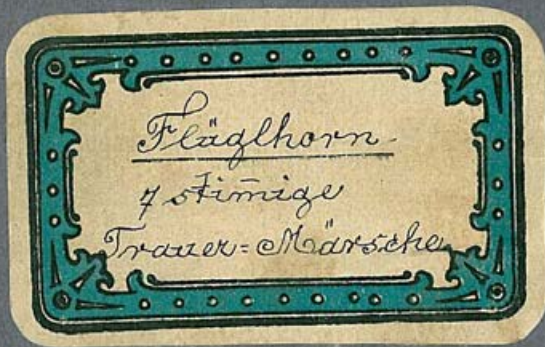 Fläglhorn
7 stim̄ige
Trauer=Märsche